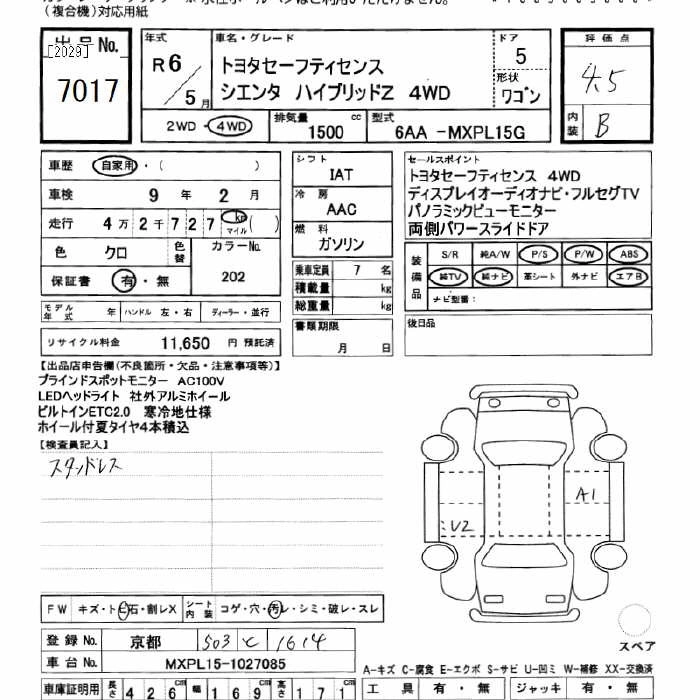 （複合機）対応用紙
出品No.
[2029]
7017
年式
R 6 / 5 月
車名・グレード
トヨタセーフティセンス
シエンタ ハイブリッドZ 4WD
ドア
5
形状
ワゴン
評価点
4.5
内装
B
2WD - 4WD
排気量
1500 cc
型式
6AA -MXPL15G
車歴 自家用・( )
車検 9 年 2 月
走行 4 万 2 千 7 2 7 km マイル ( )
色 クロ
色替
カラーNo.
202
保証書 有・無
モデル年式 年
ハンドル 左・右
ディーラー・並行
リサイクル料金 11,650 円 預託済
シフト
IAT
冷房
AAC
燃料
ガソリン
乗車定員 7 名
積載量 kg
総重量 kg
書類期限
月 日
セールスポイント
トヨタセーフティセンス 4WD
ディスプレイオーディオナビ・フルセグTV
パノラミックビューモニター
両側パワースライドドア
装備品
S/R 純A/W P/S P/W ABS
純TV 純ナビ 革シート 外ナビ エアB
ナビ型番：
後日品
【出品店申告欄（不良箇所・欠品・注意事項等）】
ブラインドスポットモニター AC100V
LEDヘッドライト 社外アルミホイール
ビルトインETC2.0 寒冷地仕様
ホイール付夏タイヤ4本積込
【検査員記入】
スタッドレス
A1
U2
FW キズ・トビ石・割レX
シート内装 コゲ・穴・汚レ・シミ・破レ・スレ
登録No. 京都 503 と 1614
車台No. MXPL15-1027085
スペア
A-キズ C-腐食 E-エクボ S-サビ U-凹ミ W-補修 XX-交換済
車庫証明用 長さ 426 cm 幅 169 cm 高さ 171
工具 有・無 ジャッキ 有・無